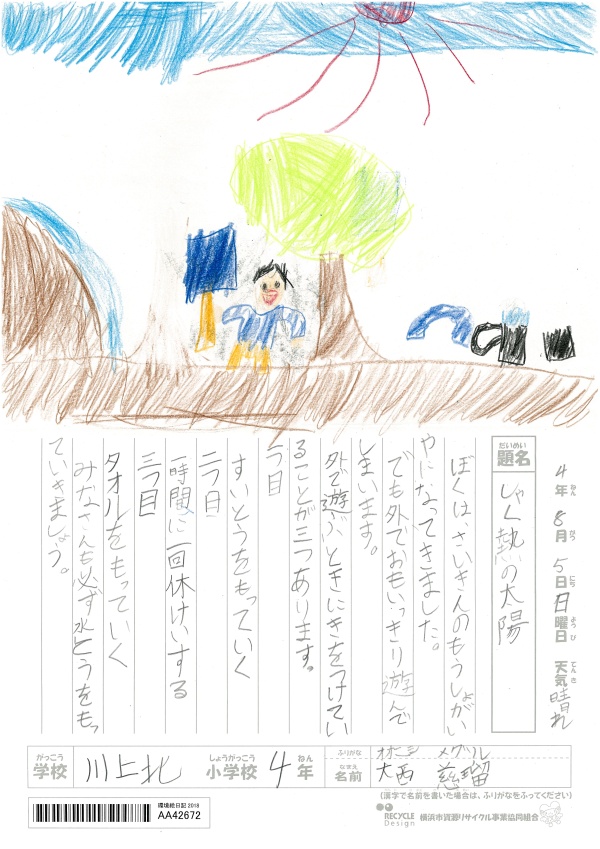 4年8月5日日曜日 天気晴れ
ねん がつ にち ようび てんき
だいめい
題名
しゃく熱の太陽
ぼくは、さいきんのもうしょがい
やになってきました。
でも外でおもいっきり遊んで
しまいます。
外で遊ぶときにきをつけてい
ることが三つあります。
一つ目
すいとうをもっていく
二つ目
一時間に一回休けいする
三つ目
タオルをもっていく
みなさんも必ず水とうをもっ
ていきましょう。
がっこう
学校
川上北
しょうがっこう
小学校
4年
ねん
ふりがな
オオニシ メグル
なまえ
名前
大西 慈瑠
(漢字で名前を書いた場合は、ふりがなをふってください)
環境絵日記 2018
AA42672
RECYCLE
Design
横浜市資源リサイクル事業協同組合